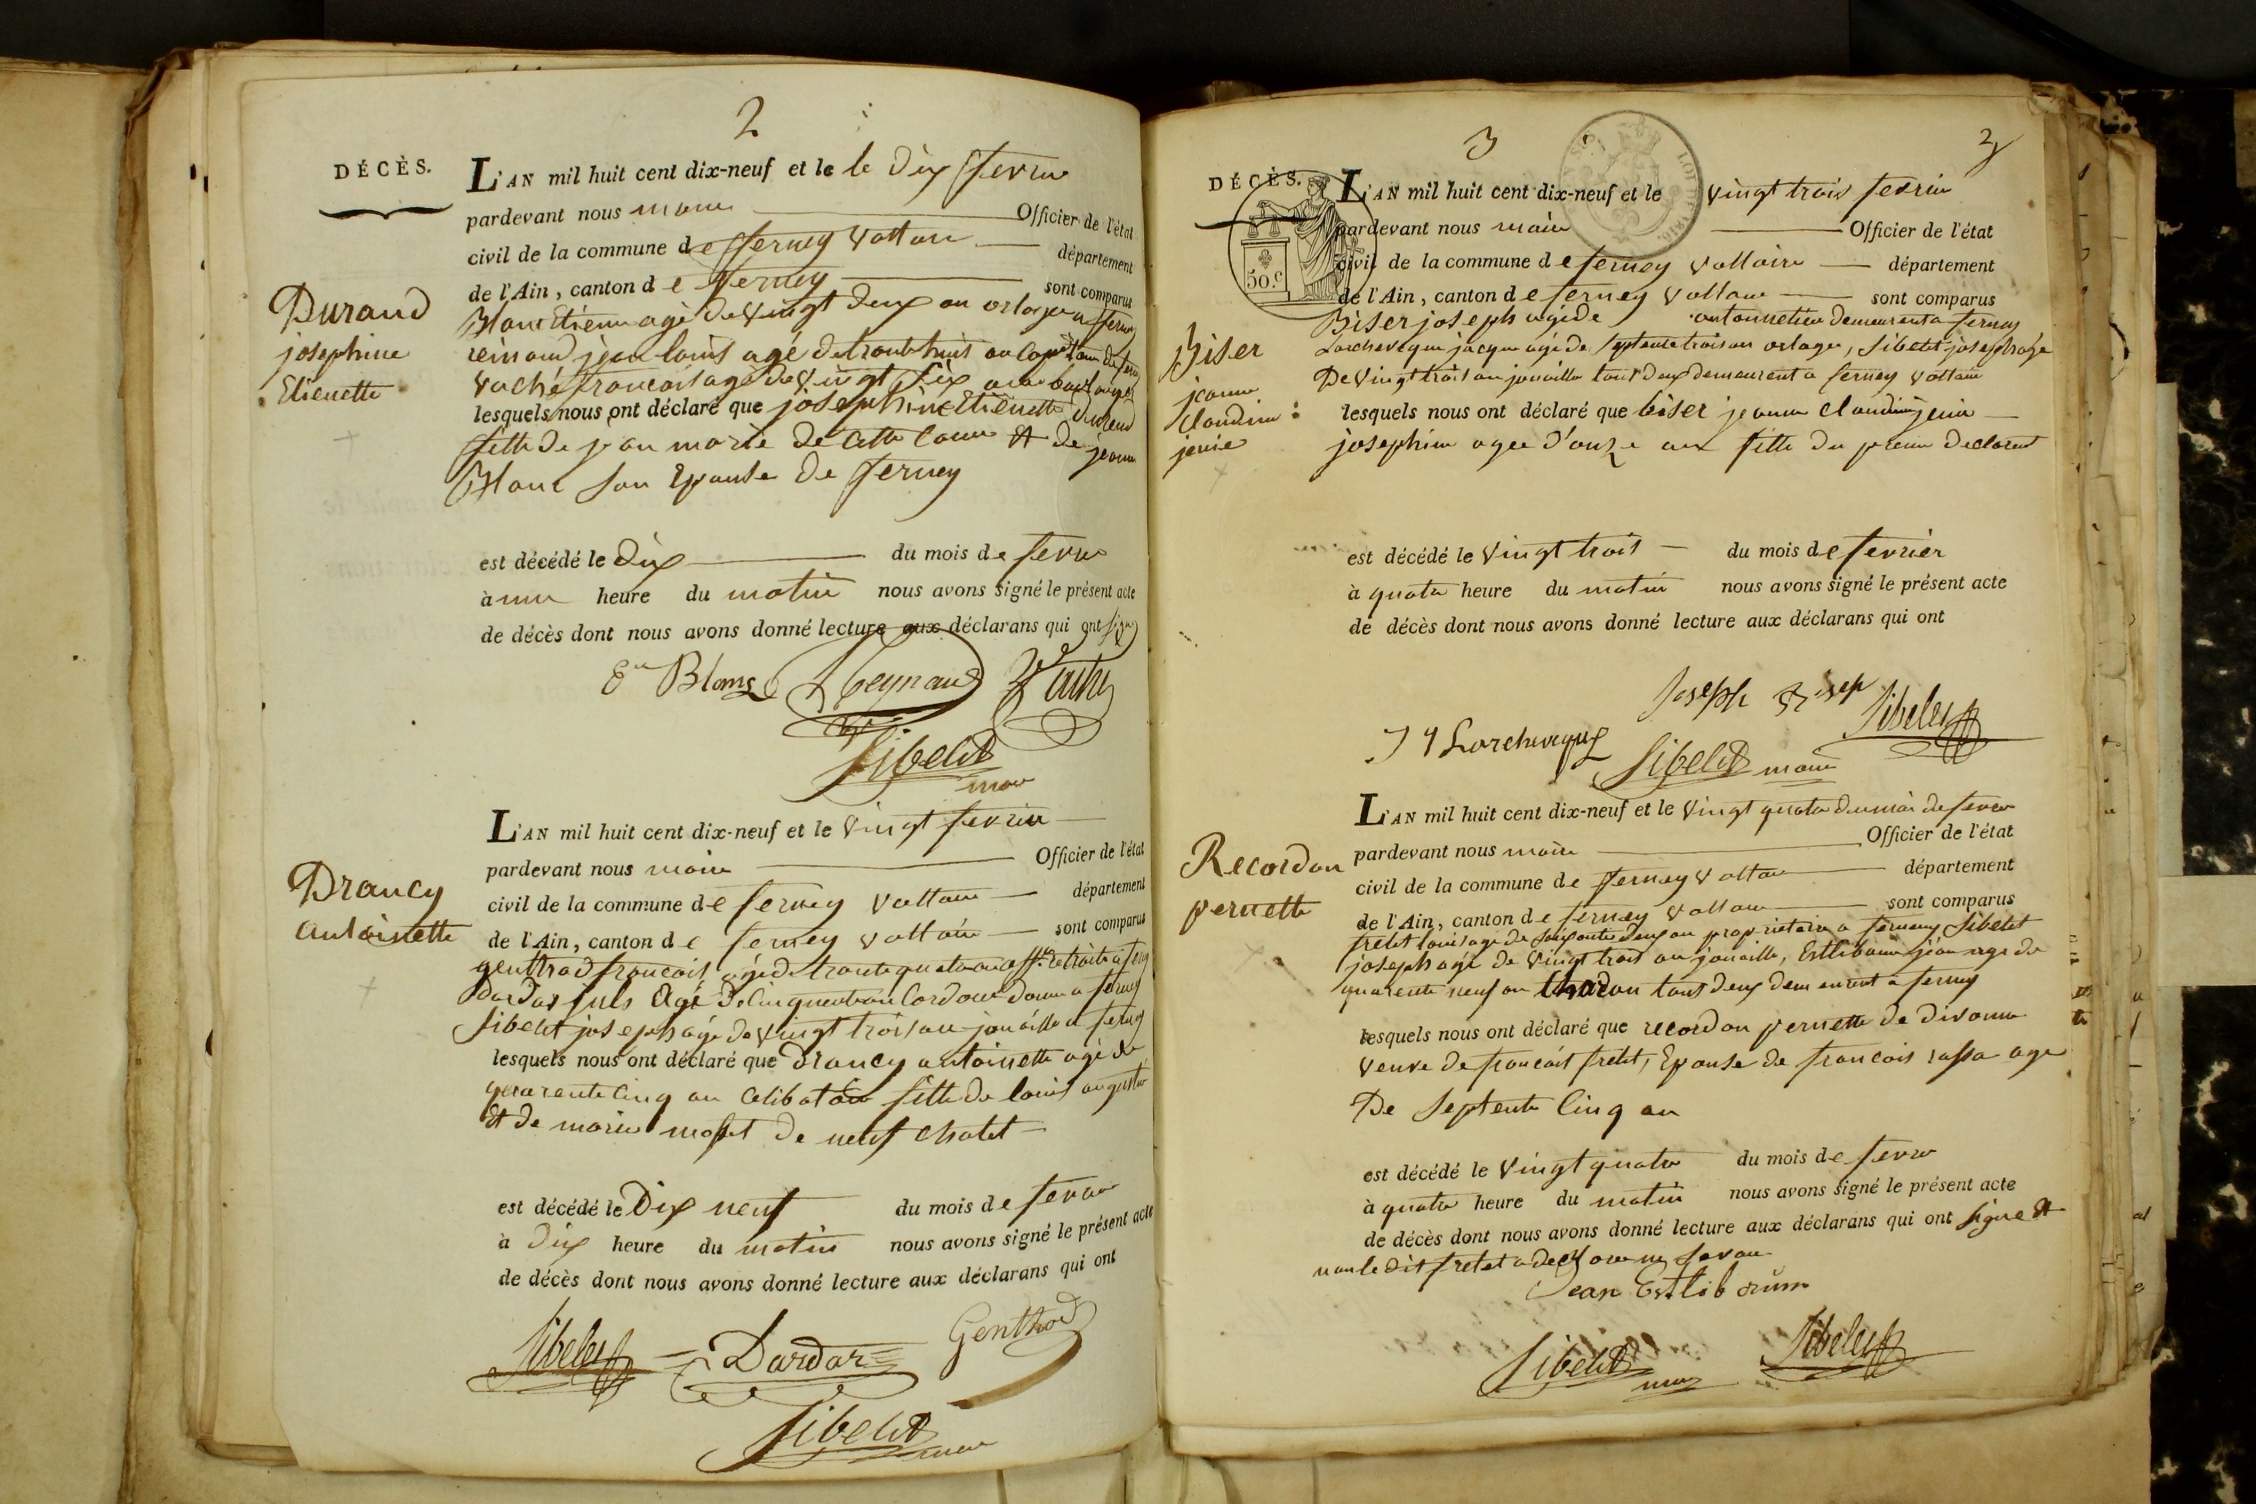 2
DÉCÈS.
L'AN mil huit cent dix-neuf et le le dix fevrier
pardevant nous maire Officier de l'état
civil de la commune de ferney voltaire département
de l'Ain, canton de ferney sont comparus
Durand
josephine
Etienette
Blanc Etienne agé de vingt deux an orloger a ferney
reinaud jean louis agé de trante huit an
vaché francois agé de vingt six ans
lesquels nous ont déclaré que josephine Etienette durand
fille de jean marie de cette comune et de jeanne
Blanc son Epouse de ferney
est décédé le dix du mois de fevrier
à une heure du matin nous avons signé le présent acte
de décès dont nous avons donné lecture aux déclarans qui ont signé
En Blanc Reynaud Vaché
Sibelet
maire
L'AN mil huit cent dix-neuf et le vingt fevrier
pardevant nous maire Officier de l'état
civil de la commune de ferney voltaire département
de l'Ain, canton de ferney voltaire sont comparus
Drancy
antoinette
genthod francois agé de trante quatre an off. retraité a ferney
Dardar juls agé de cinquante an Cordoue a ferney
Sibelet joseph agé de vingt trois an jouaille a ferney
lesquels nous ont déclaré que drancy antoinette agé de
quarante cinq an celibataire fille de louis auguste
et de marie de neuf chatel
est décédé le Dix neuf du mois de fevrier
à dix heure du matin nous avons signé le présent acte
de décès dont nous avons donné lecture aux déclarans qui ont
Sibelet Dardar Genthod
Sibelet
maire
3
3
DÉCÈS.
50.c
L'AN mil huit cent dix-neuf et le vingt trois fevrier
pardevant nous maire Officier de l'état
civil de la commune de ferney voltaire département
de l'Ain, canton de ferney voltaire sont comparus
Biser
jeanne
Claudine
jenie
Biser joseph agé de cantonnetier demeurent a ferney
Larcheveque jacque agé de septente trois an orloger, Sibelet joseph agé
De vingt trois an jouaille tout deux demeurent a ferney voltaire
lesquels nous ont déclaré que biser jeanne claudine jenie
josephine agee d'onze ans fille du premier declarent
est décédé le vingt trois du mois de fevrier
à quatre heure du matin nous avons signé le présent acte
de décès dont nous avons donné lecture aux déclarans qui ont
Joseph Biser Sibelet
J Larcheveque
Sibelet maire
L'AN mil huit cent dix-neuf et le vingt quatre du mois de fevrier
pardevant nous maire Officier de l'état
civil de la commune de ferney voltaire département
de l'Ain, canton de ferney voltaire sont comparus
Recordon
pernette
fretet louis age de soixante deux an propriétaire a ferney Sibelet
joseph agé de vingt trois an jouaille, Estlibaum jean age de
quarente neuf an tout deux demeurent a ferney
lesquels nous ont déclaré que recordon pernette de divonne
veuve de francois fretet, Epouse de francois age
De septente cinq an
est décédé le vingt quatre du mois de fevrier
à quatre heure du matin nous avons signé le présent acte
de décès dont nous avons donné lecture aux déclarans qui ont signe et
non le dit fretet a declare ne savoir
Jean Estlibaum
Sibelet Sibelet
maire